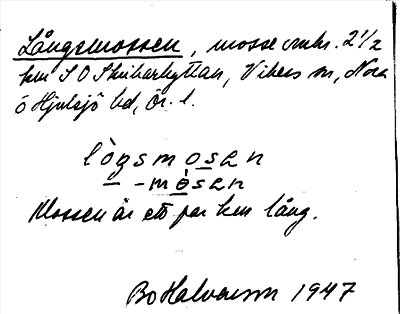 Långsmossen, mosse omkr. 2 1/2
km S O Skribarhyttan, Vikers sn, Nora
o Hjulsjö bd, Ör. l.
lòŋsmosən
– -mò̀sən
Mossen är ett par km lång.
Bo Halvarson 1947